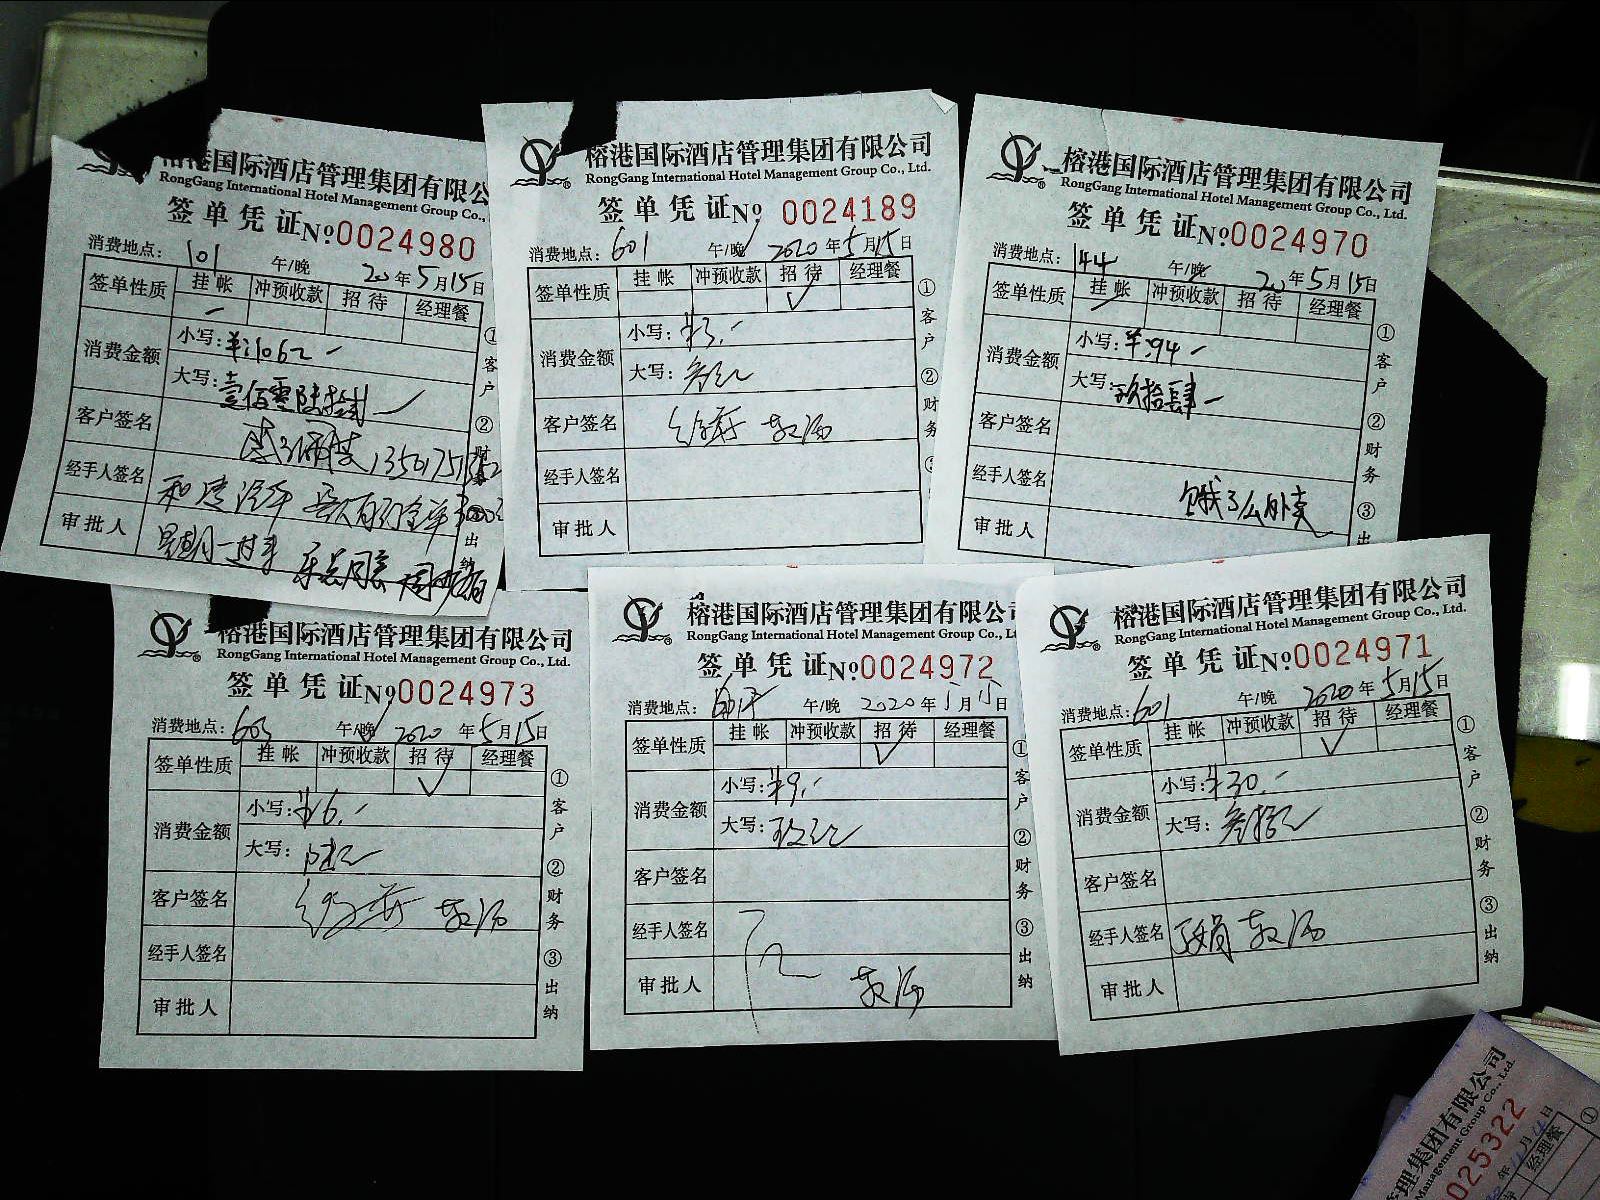 榕港国际酒店管理集团有限公
RongGang International Hotel Management Group Co.,
签单凭证 №0024980
消费地点: 101 午/晚 20年5月15日
签单性质 挂帐 冲预收款 招待 经理餐
消费金额 小写: ¥:1062
大写:
客户签名
经手人签名
审批人
①客户 ②财务 出纳
榕港国际酒店管理集团有限公司
RongGang International Hotel Management Group Co., Ltd.
签单凭证 № 0024189
消费地点: 601 午/晚 2020年5月15日
签单性质 挂帐 冲预收款 招待 经理餐
✓
消费金额 小写: ¥3.-
大写: 叁元
客户签名
经手人签名
审批人
①客户 ②财务
榕港国际酒店管理集团有限公司
RongGang International Hotel Management Group Co., Ltd.
签单凭证 №0024970
消费地点: 144 午/晚 20年5月15日
签单性质 挂帐 冲预收款 招待 经理餐
消费金额 小写: ¥:94
大写: 玖拾肆
客户签名
经手人签名 饿了么外卖
审批人
①客户 ②财务 ③出
榕港国际酒店管理集团有限公司
RongGang International Hotel Management Group Co., Ltd.
签单凭证 №0024973
消费地点: 603 午/晚 2020年5月15日
签单性质 挂帐 冲预收款 招待 经理餐
✓
消费金额 小写: ¥6.-
大写: 陆元
客户签名
经手人签名
审批人
①客户 ②财务 ③出纳
榕港国际酒店管理集团有限公司
RongGang International Hotel Management Group Co., Lt
签单凭证 №0024972
消费地点: 午/晚 2020年5月15日
签单性质 挂帐 冲预收款 招待 经理餐
✓
消费金额 小写: ¥9.-
大写: 玖元
客户签名
经手人签名
审批人
①客户 ②财务 ③出纳
榕港国际酒店管理集团有限公司
RongGang International Hotel Management Group Co., Ltd.
签单凭证 №0024971
消费地点: 601 午/晚 2020年5月15日
签单性质 挂帐 冲预收款 招待 经理餐
✓
消费金额 小写: ¥30.-
大写: 叁拾元
客户签名
经手人签名
审批人
①客户 ②财务 ③出纳
理集团有限公司
Management Group Co., Ltd.
025322
年 月 日
经理餐
①